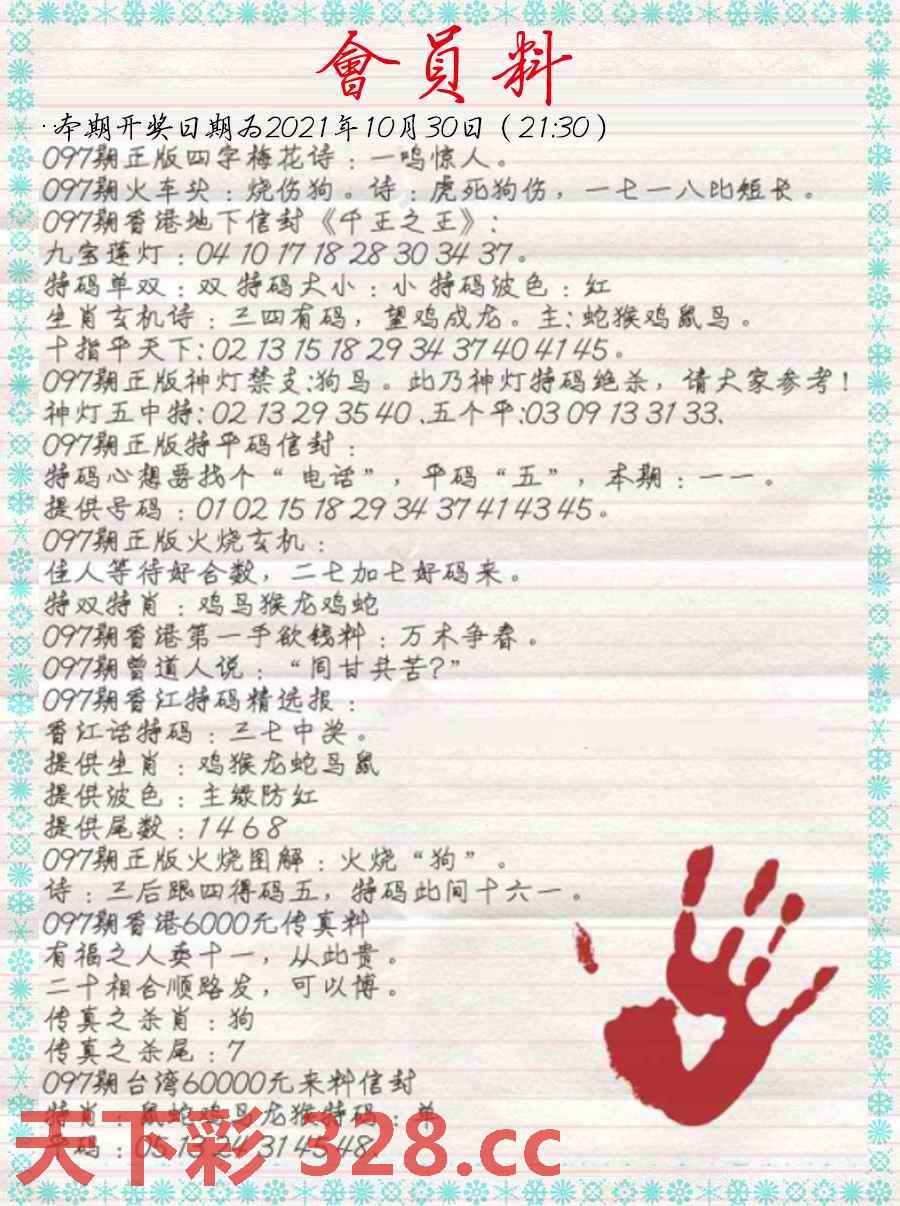 會員料
·本期开奖日期为2021年10月30日（21:30）
097期正版四字梅花诗：一鸣惊人。
097期火车头：烧伤狗。诗：虎死狗伤，一七一八比短长。
097期香港地下信封《千王之王》：
九宝莲灯：04 10 17 18 28 30 34 37。
特码单双：双 特码大小：小 特码波色：红
生肖玄机诗：三四有码，望鸡成龙。主：蛇猴鸡鼠马。
十指平天下：02 13 15 18 29 34 37 40 41 45。
097期正版神灯禁支:狗马。此乃神灯特码绝杀，请大家参考！
神灯五中特：02 13 29 35 40 、五个平:03 09 13 31 33、
097期正版特平码信封：
特码心想要找个“电话”，平码“五”，本期：一一。
提供号码：01 02 15 18 29 34 37 41 43 45。
097期正版火烧玄机：
佳人等待好合数，二七加七好码来。
特双特肖：鸡马猴龙鸡蛇
097期香港第一手欲钱料：万木争春。
097期曾道人说：“同甘共苦?”
097期香江特码精选报：
香江话特码：三七中奖。
提供生肖：鸡猴龙蛇马鼠
提供波色：主绿防红
提供尾数：1 4 6 8
097期正版火烧图解：火烧“狗”。
诗：三后跟四得码五，特码此间十六一。
097期香港6000元传真料
有福之人卖十一，从此贵。
二十相合顺路发，可以博。
传真之杀肖：狗
传真之杀尾：7
097期台湾60000元来料信封
特肖：鼠蛇鸡马龙猴特码：单
平码：05 13 24 31 45 48.
天下彩 328.cc